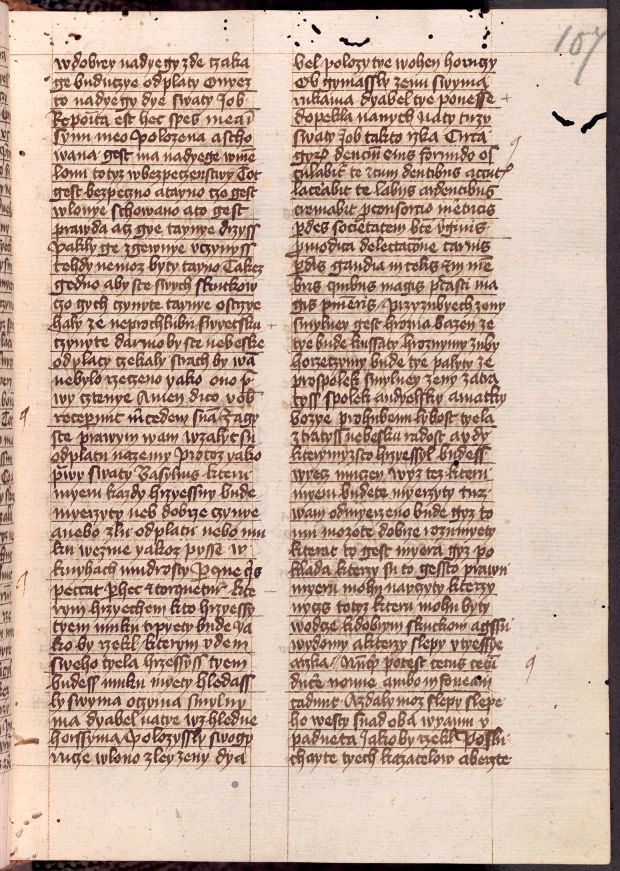 107
w dobrey nadyegy zde czaka
ge buduczye odplaty Onyez
to nadyegy dye swaty Job
Reposita est hec spes mea ī
synu meo Polozena a scho
wana gest ma nadyege w mē
lonu totyz w bezpeczenstwy Coz
gest bezpeczno a tayno czo gest
w lonye schowano a to gest
prawda az gye taynye drzyss
Pakly ge zgewnye vczynyss
tehdy nemoz byty tayno Takez
gedno aby ste swych skutkow
czo gych czynyte taynye ostrzye
haly ze nepochlubu swyetsku
czynyte darmo by ste nebeske
odplaty czekaly strach by wā
nebylo rzeczeno yako ono p̄
wy cztenye Amen dico vob
receperunt m̄cedem suā Zagy
ste prawym wam wzaly ssu
odplatu nazemy Protoz yako
p̄wy swaty Basylius kteru
myeru kazdy hrzyessny bude
myerzyty neb dobrze czynye
a nebo zlu odplatu nebo mu
ku wezme yakoz pysse w
knyhach mudrosty Per que q̄s
peccat per hec et torquetur kte
rym hrzyechem kto hrzyessy
tyem muku trpyety bude ya
ko by rzekl kterym vdem
sweho tyela hrzessyss tyem
budess muku myety hledass
ly swyma oczyma smylny
ma dyabel na tye wzhledne
horssyma Polozyssly swogy
rucze w lono zley zeny dya
bel polozy tye w ohen horuczy
Ob gymassly zenu swyma
rukama dyabel tye ponesse
do pekla na nych na ty twrzy
swaty Job takto rzka Circa
gyrum dencium eius formido os
culabitur te et cum dentibus
lacerabit te labiis ardentibus
cremabit p consorcio meretricis
perdes societatem bte virginis
p modica delectatione carnis
perdis gaudia in celis et in mēe
bris quibus magis peccasti ma
gis punieris Przyrubyech zeny
smylney gest hrozna bazen ze
tye bude kussaty hroznymy zuby
horzeczymy bude tye palyty ze
pro spolek smylney zeny zatra
tyss spolek andyelsky a matky
bozye pro hubenu lybost tyela
ztratyss nebesku radost a vdy
kterymyzsto hrzyessyl budess
wyecz muczen wyz tez kteru
myeru budete myerzyty tuz
wam odmyerzeno bude gyz to
mu mozete dobrze rozumyety
kterak to gest myera gyz po
klada kterzy su to gessto prawu
myeru mohu naryzty kterzy
nycz totyz kteru mohu byty
wodcze k dobrym skutkom a gssu
wydomy a kterzy slepy v tyessye
a rzka Nunquid potest cecus cecum
ducere nonne ambo in foueam
cadunt Azdaly moz slepy slepe
ho westy snad oba w yamu v
padneta Jako by rzekl Poslu
chayte tyech kazatelow a berzte